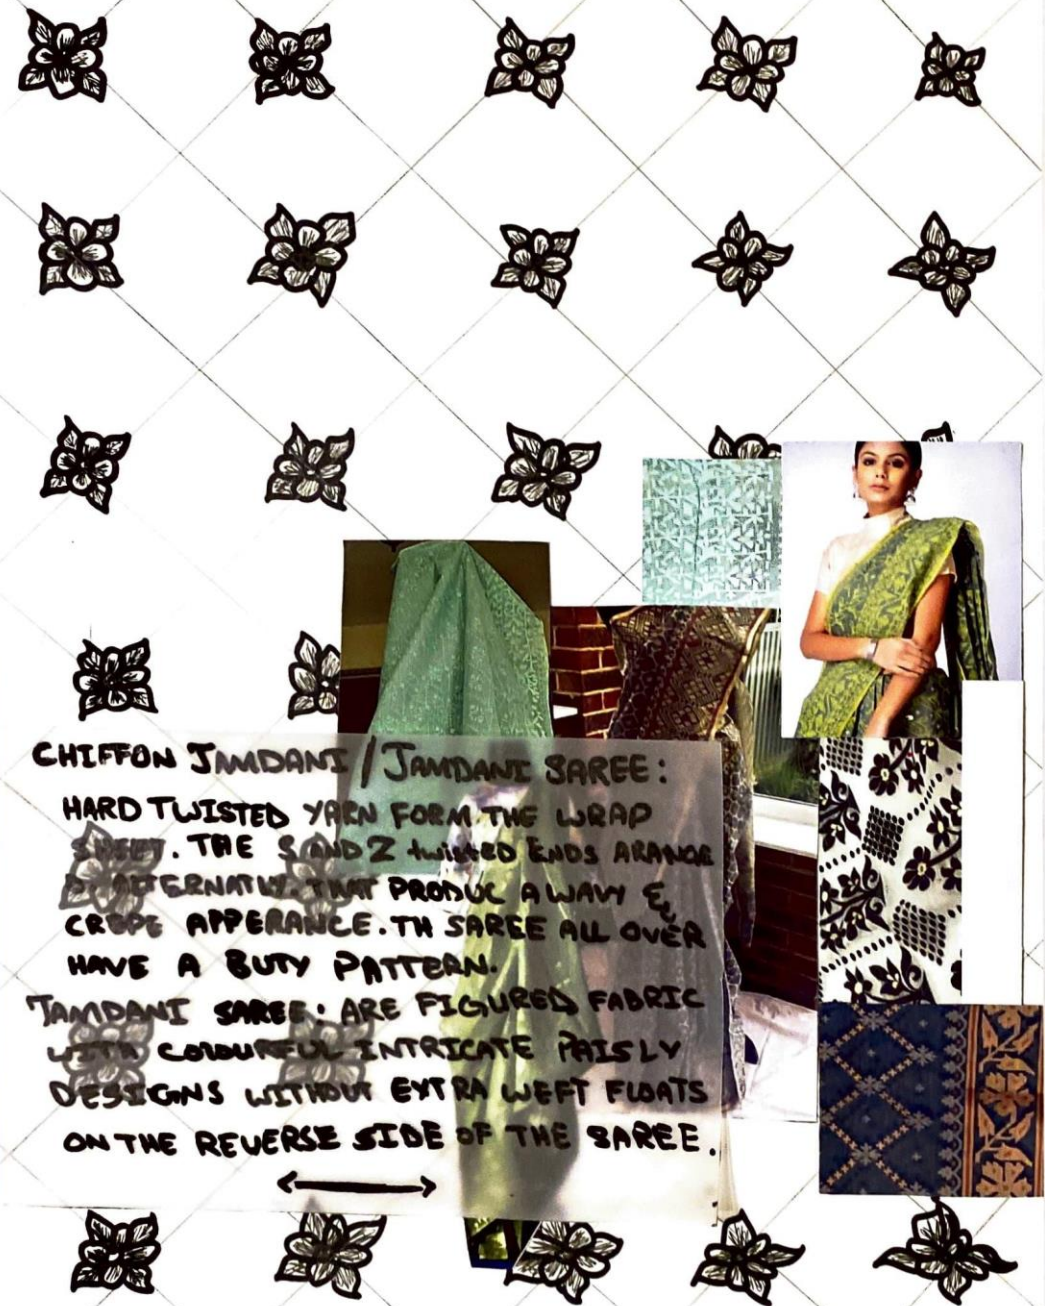 CHIFFON JAMDANI / JAMDANI SAREE:
HARD TWISTED YARN FORM THE WRAP
SHEET. THE S AND Z twisted ENDS ARANGE
ALTERNATLY. THAT PRODUC A WAVY &
CREPE APPERANCE. TH SAREE ALL OVER
HAVE A BUTY PATTERN.
JAMDANI SAREE: ARE FIGURED FABRIC
WITH COLOURFUL INTRICATE PAISLY
DESIGNS WITHOUT EXTRA WEFT FLOATS
ON THE REVERSE SIDE OF THE SAREE.